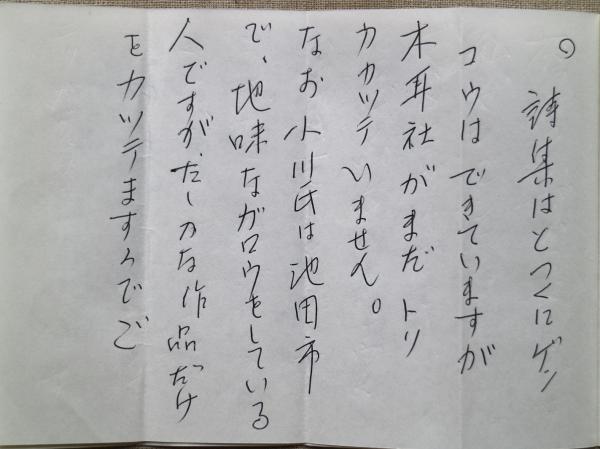 ○ 詩集はとっくにゲン
コウはできていますが
木耳社がまだトリ
カカッテいません。
なお小川氏は池田市
で、地味なガロウをしている
人ですが、たしカな作品だけ
をカッテますのでご